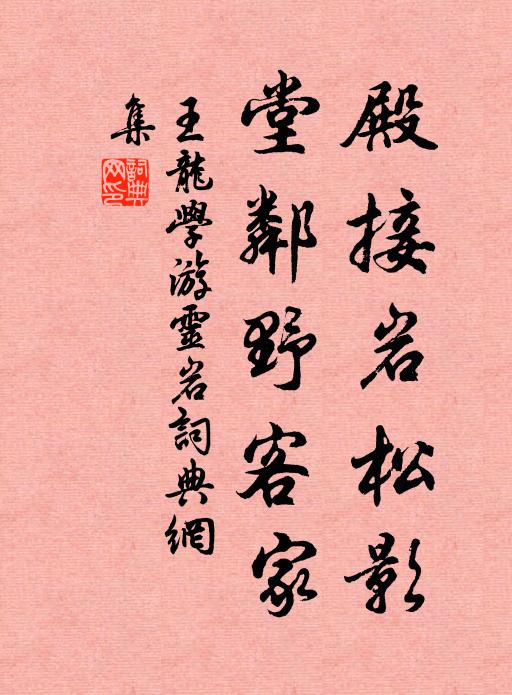 殿接岩松影
堂鄰野客家
王龍學游靈岩詞典網
集
詞典
网印